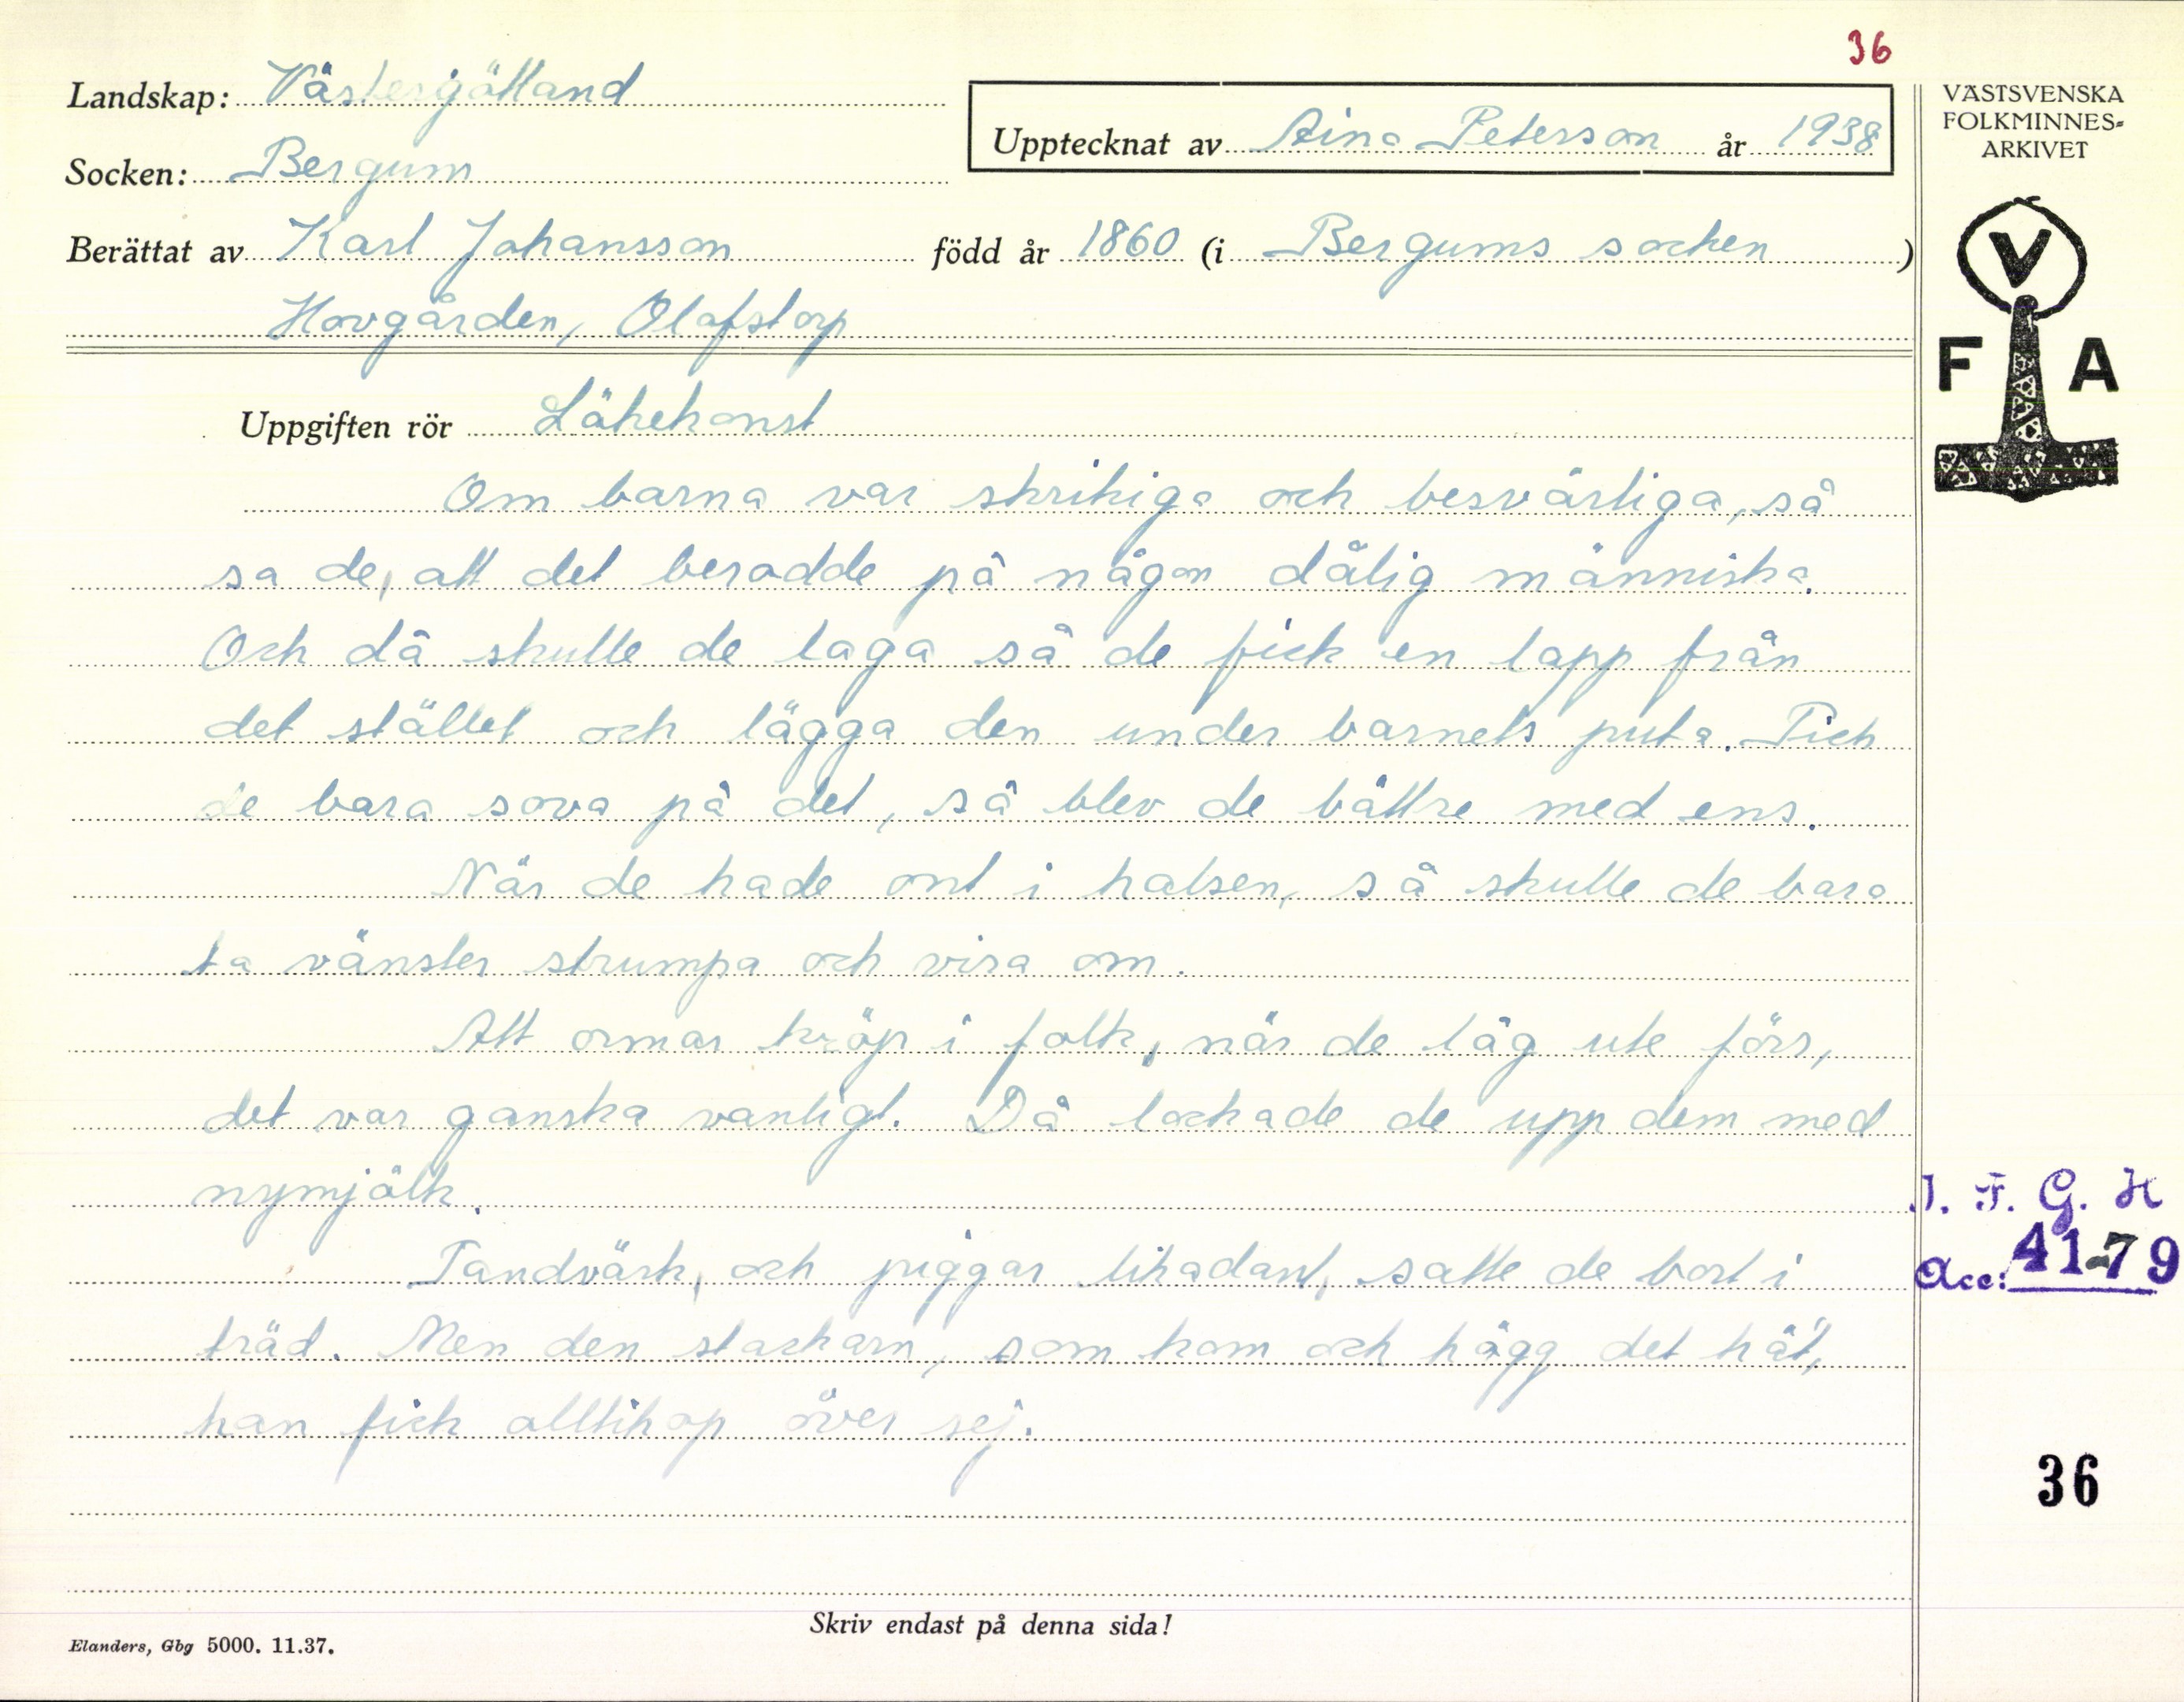 36
Landskap: Västergötland
VÄSTSVENSKA
FOLKMINNES-
ARKIVET
Upptecknat av Aina Peterson år 1938
Socken: Bergum
Berättat av Karl Johansson född år 1860 (i Bergums socken )
Hovgården, Olofstorp
V
F A
Uppgiften rör Läkekonst
Om barna var skrikiga och besvärliga, så
sa de, att det berodde på någon dålig människa.
Och då skulle de laga så de fick en lapp från
det stället och lägga den under barnets puta. Fick
de bara sova på det, så blev de bättre med ens.
När de hade ont i halsen, så skulle de bara
ta vänster strumpa och vira om.
Att ormar kröp i folk, när de låg ute förr,
det var ganska vanligt. Då lockade de upp dem med
nymjölk.
Tandvärk, och piggar likadant, satte de bort i
träd. Men den stackarn, som kom och högg det hät,
han fick alltihop över sej.
I. F. G. H
Acc: 4179
36
Skriv endast på denna sida!
Elanders, Gbg 5000. 11.37.